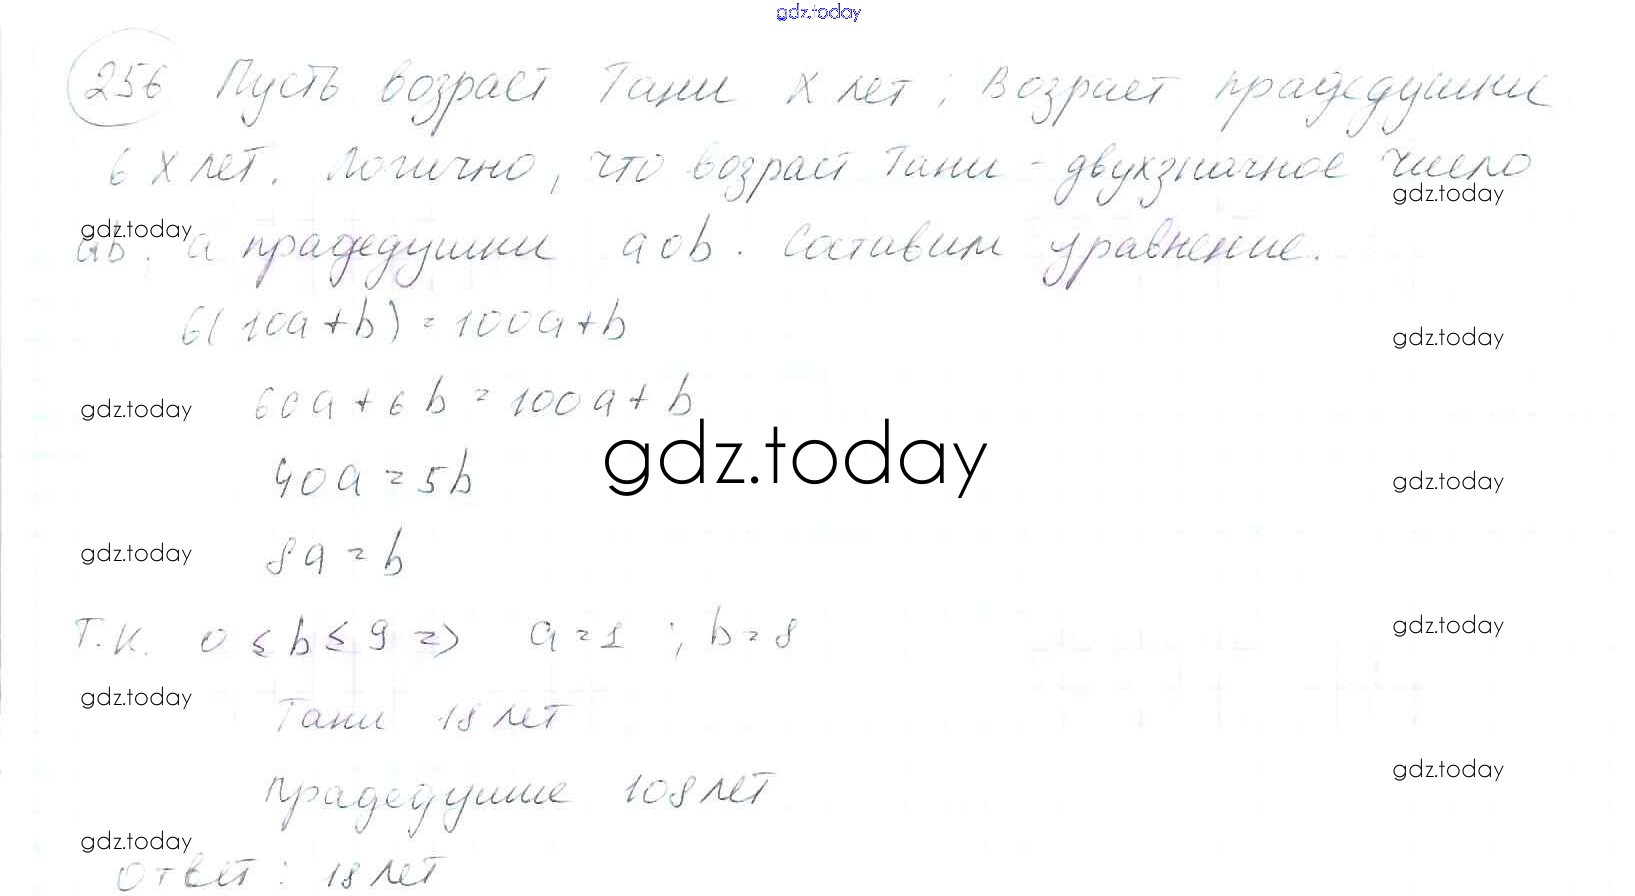 gdz.today
256 Пусть возраст Тани x лет; Возраст прадедушки
6x лет. Логично, что возраст Тани - двухзначное число
gdz.today
gdz.today
ab. а прадедушки a0b. Составим уравнение.
6(10a+b)=100a+b
gdz.today
60a+6b=100a+b
gdz.today
gdz.today
40a=5b
gdz.today
8a=b
gdz.today
Т.к. 0≤b≤9 => a=1; b=8
gdz.today
Тани 18 лет
gdz.today
прадедушке 108 лет
gdz.today
gdz.today
Ответ: 18 лет